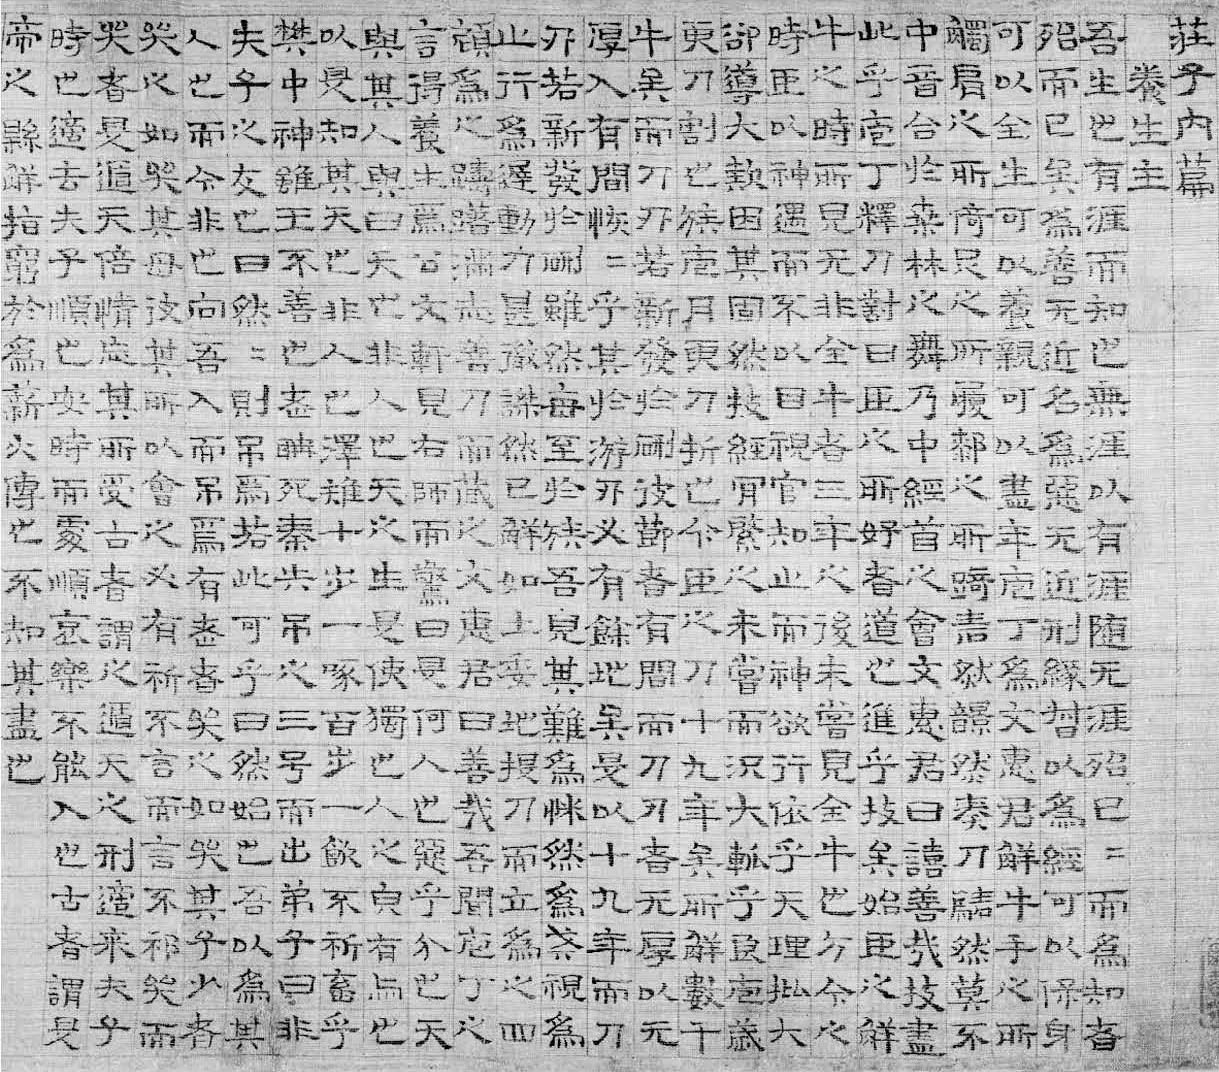 莊子内篇
養生主
吾生也有涯而知也無涯以有涯随无涯殆已=而為知者
殆而已矣為善无近名為惡无近刑緣督以為經可以保身
可以全生可以養親可以盡年庖丁為文惠君解牛手之所
觸肩之所倚足之所履厀之所踦砉然嚮然奏刀騞然莫不
中音合於桑林之舞乃中經首之會文惠君曰譆善哉技盡
此乎庖丁釋刀對曰臣之所好者道也進乎技矣始臣之解
牛之時所見无非全牛者三年之後未嘗見全牛也方今之
時臣以神遇而不以目視官知止而神欲行依乎天理批大
郤導大窾因其固然技經肯綮之未嘗而況大軱乎良庖歲
更刀割也族庖月更刀折也今臣之刀十九年矣所解數千
牛矣而刀刃若新發於硎彼節者有間而刀刃者无厚以无
厚入有間恢=乎其於游刃必有餘地矣是以十九年而刀
刃若新發於硎雖然每至於族吾見其難為怵然為戒視為
止行為遲動刀甚微謋然已解如土委地提刀而立為之四
顧為之躊躇滿志善刀而藏之文惠君曰善哉吾聞庖丁之
言得養生焉公文軒見右師而驚曰是何人也惡乎介也天
與其人與曰天也非人也天之生是使獨也人之皃有與也
以是知其天也非人也澤雉十步一啄百步一飲不祈畜乎
樊中神雖王不善也老聃死秦失弔之三号而出弟子曰非
夫子之友也曰然=則弔焉若此可乎曰然始也吾以為其
人也而今非也向吾入而弔焉有老者哭之如哭其子少者
哭之如哭其母彼其所以會之必有祈不言而言不祈哭而
哭者是遁天倍情忘其所受古者謂之遁天之刑適來夫子
時也適去夫子順也安時而處順哀樂不能入也古者謂是
帝之縣解指窮於為薪火傳也不知其盡也